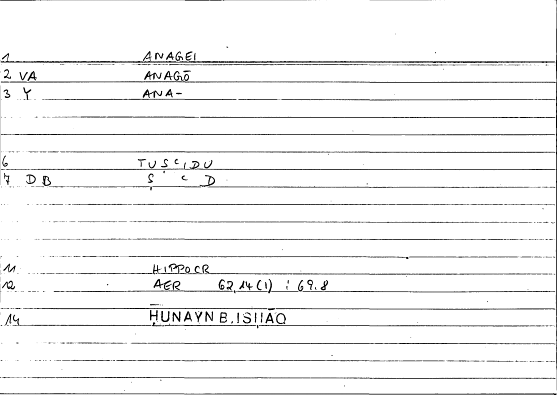 1 ANAGEI
2 VA ANAGŌ
3 Y ANA-
6 TUSCIDU
7 DB Ṣ c D
11 HIPPOCR
12 AER 62,14(1) : 69.8
14 ḤUNAYN B. ISḤĀQ